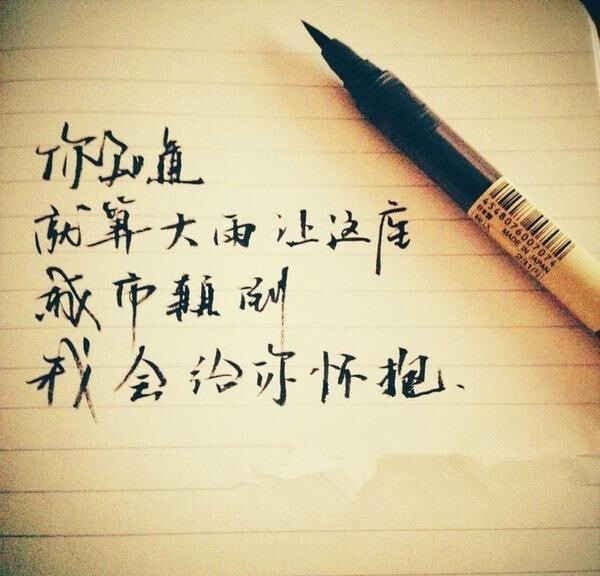 你知道
就算大雨让这座
城市颠倒
我会给你怀抱、
4548076007074
MADE IN JAPAN